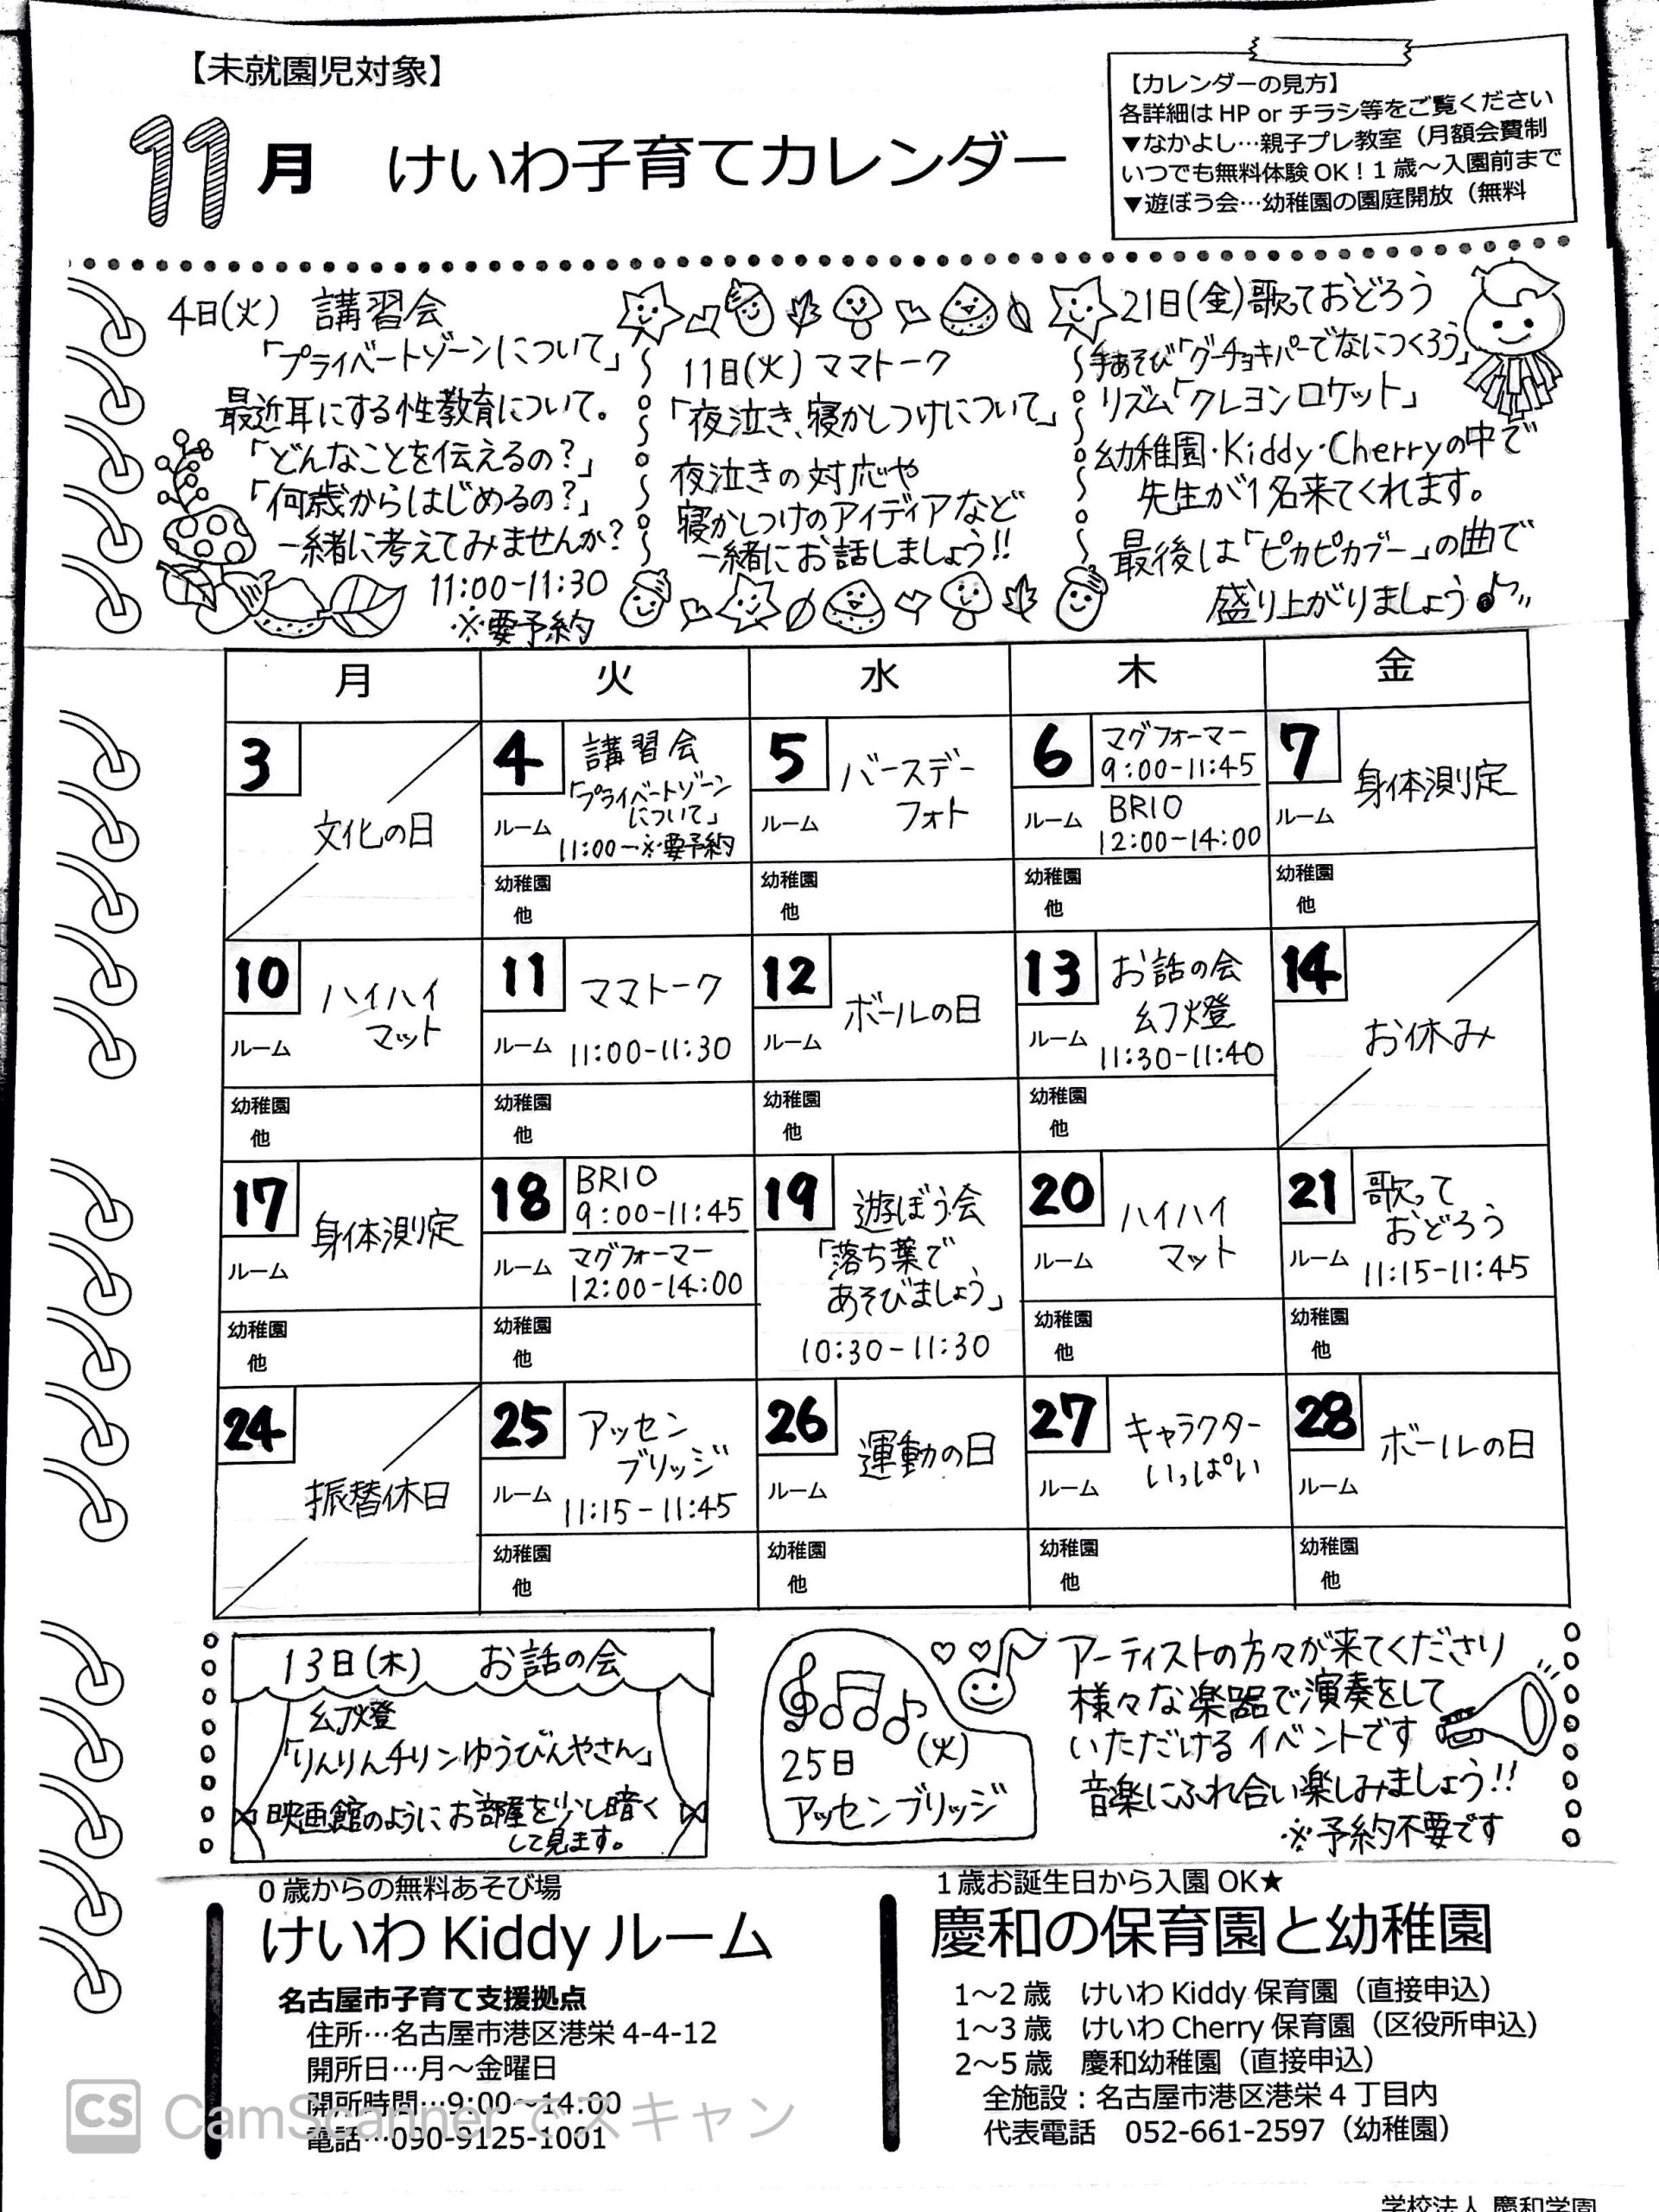 【未就園児対象】
11月 けいわ子育てカレンダー
【カレンダーの見方】
各詳細は HP or チラシ等をご覧ください
▼なかよし…親子プレ教室（月額会費制
いつでも無料体験 OK！1 歳～入園前まで
▼遊ぼう会…幼稚園の園庭開放（無料
4日(火) 講習会
「プライベートゾーンについて」
最近耳にする性教育について。
「どんなことを伝えるの？」
「何歳からはじめるの？」
一緒に考えてみませんか？
11:00-11:30
※要予約
11日(火) ママトーク
「夜泣き、寝かしつけについて」
夜泣きの対応や
寝かしつけのアイディアなど
一緒にお話しましょう!!
21日(金)歌っておどろう
手あそび「グーチョキパーでなにつくろう」
リズム「クレヨンロケット」
幼稚園・Kiddy・Cherryの中で
先生が1名来てくれます。
最後は「ピカピカブー」の曲で
盛り上がりましょう♪
月 火 水 木 金
3
文化の日
4
講習会
「プライベートゾーン
について」
ルーム
11:00-※要予約
幼稚園
他
5
バースデー
フォト
ルーム
幼稚園
他
6
マグフォーマー
9:00-11:45
BRIO
ルーム
12:00-14:00
幼稚園
他
7
身体測定
ルーム
幼稚園
他
10
ハイハイ
マット
ルーム
幼稚園
他
11
ママトーク
ルーム
11:00-11:30
幼稚園
他
12
ボールの日
ルーム
幼稚園
他
13
お話の会
幻燈
ルーム
11:30-11:40
幼稚園
他
14
お休み
17
身体測定
ルーム
幼稚園
他
18
BRIO
9:00-11:45
マグフォーマー
ルーム
12:00-14:00
幼稚園
他
19
遊ぼう会
「落ち葉で
あそびましょう」
10:30-11:30
20
ハイハイ
マット
ルーム
幼稚園
他
21
歌って
おどろう
ルーム
11:15-11:45
幼稚園
他
24
振替休日
25
アッセン
ブリッジ
ルーム
11:15-11:45
幼稚園
他
26
運動の日
ルーム
幼稚園
他
27
キャラクター
いっぱい
ルーム
幼稚園
他
28
ボールの日
ルーム
幼稚園
他
13日(木) お話の会
幻燈
「りんりんチリンゆうびんやさん」
映画館のようにお部屋を少し暗く
して見ます。
25日(火)
アッセンブリッジ
アーティストの方々が来てくださり
様々な楽器で演奏をして
いただける イベントです
音楽にふれ合い楽しみましょう!!
※予約不要です
0 歳からの無料あそび場
けいわ Kiddy ルーム
名古屋市子育て支援拠点
住所…名古屋市港区港栄 4-4-12
開所日…月～金曜日
開所時間…9:00～14:00
電話…090-9125-1001
1 歳お誕生日から入園 OK★
慶和の保育園と幼稚園
1～2 歳 けいわ Kiddy 保育園（直接申込）
1～3 歳 けいわ Cherry 保育園（区役所申込）
2～5 歳 慶和幼稚園（直接申込）
全施設：名古屋市港区港栄 4 丁目内
代表電話 052-661-2597（幼稚園）
CS CamScannerでスキャン
学校法人 慶和学園